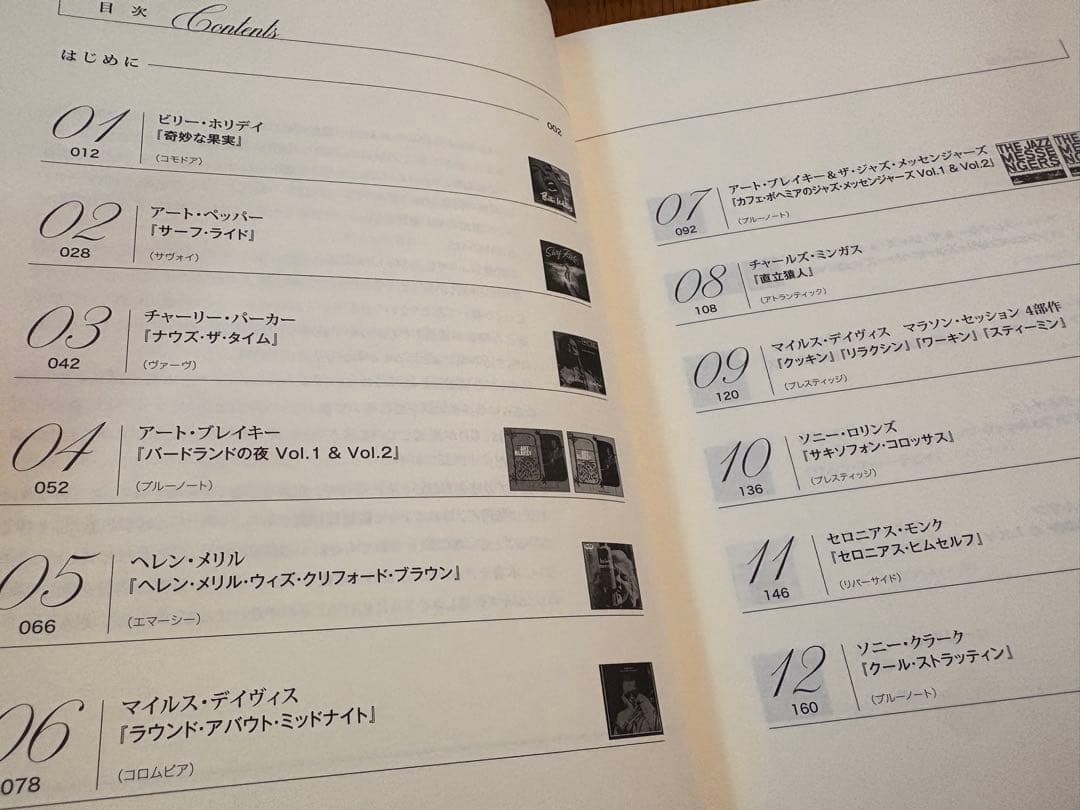 目次 Contents
はじめに 002
01 ビリー・ホリデイ
『奇妙な果実』
012 (コモドア)
02 アート・ペッパー
『サーフ・ライド』
028 (サヴォイ)
03 チャーリー・パーカー
『ナウズ・ザ・タイム』
042 (ヴァーヴ)
04 アート・ブレイキー
『バードランドの夜 Vol.1 & Vol.2』
052 (ブルーノート)
05 ヘレン・メリル
『ヘレン・メリル・ウィズ・クリフォード・ブラウン』
066 (エマーシー)
06 マイルス・デイヴィス
『ラウンド・アバウト・ミッドナイト』
078 (コロムビア)
07 アート・ブレイキー&ザ・ジャズ・メッセンジャーズ
『カフェ・ボヘミアのジャズ・メッセンジャーズ Vol.1 & Vol.2』
092 (ブルーノート)
THE JAZZ
MESSE
NGERS
08 チャールズ・ミンガス
『直立猿人』
108 (アトランティック)
09 マイルス・デイヴィス マラソン・セッション 4部作
『クッキン』『リラクシン』『ワーキン』『スティーミン』
120 (プレスティッジ)
10 ソニー・ロリンズ
『サキソフォン・コロッサス』
136 (プレスティッジ)
11 セロニアス・モンク
『セロニアス・ヒムセルフ』
146 (リバーサイド)
12 ソニー・クラーク
『クール・ストラッティン』
160 (ブルーノート)